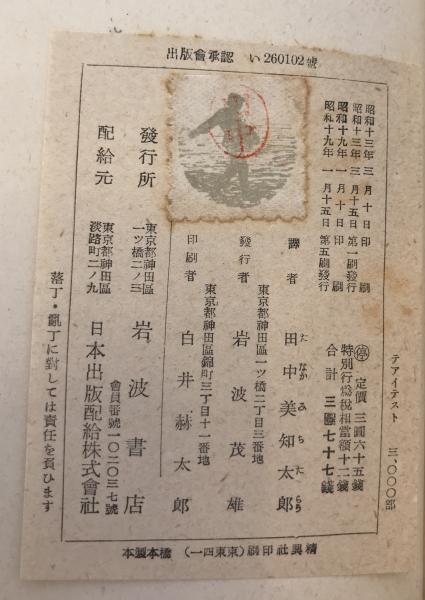 出版會承認 い260102號
テアイテスト 三、〇〇〇部
昭和十三年三月十日印刷
昭和十三年三月十五日第一刷發行
昭和十九年一月十日印刷
昭和十九年一月十五日第五刷發行
停 定價 三圓六十五錢
特別行爲税相當額十二錢
合計 三圓七十七錢
譯者 田中美知太郎
たなかみちたらう
東京都神田區一ツ橋二丁目三番地
發行者 岩波茂雄
東京都神田區錦町三丁目十一番地
印刷者 白井赫太郎
東京都神田區一ツ橋二ノ三
發行所 岩波書店
會員番號一〇二〇三七號
東京都神田區淡路町二ノ九
配給元 日本出版配給株式會社
落丁・亂丁に對しては責任を負ひます
精興社印刷(東東四一) 橋本製本